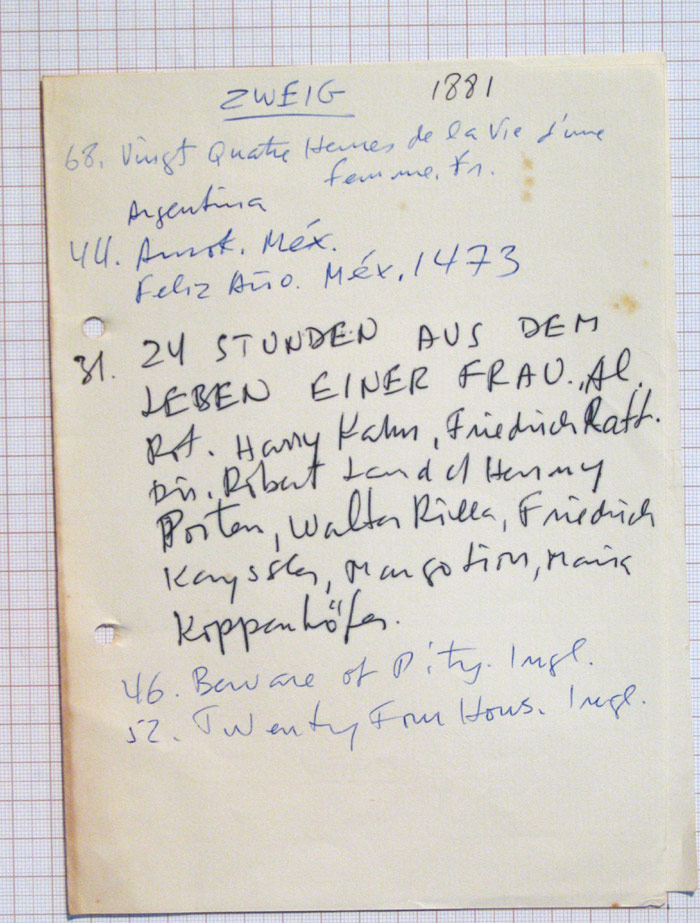 ZWEIG 1881
68. Vingt Quatre Heures de la Vie d'une
femme. Fr.
Argentina
44. Amok. Méx.
Feliz Año. Méx. 1473
31. 24 STUNDEN AUS DEM
LEBEN EINER FRAU. Al.
Rot. Harry Kahn, Friedrich Raff.
Dir. Robert Land cf Henny
Porten, Walter Rilla, Friedrich
Kayssler, Margo Lion, Maria
Koppenhöfer.
46. Beware of Pity. Ingl.
52. Twenty Four Hours. Ingl.